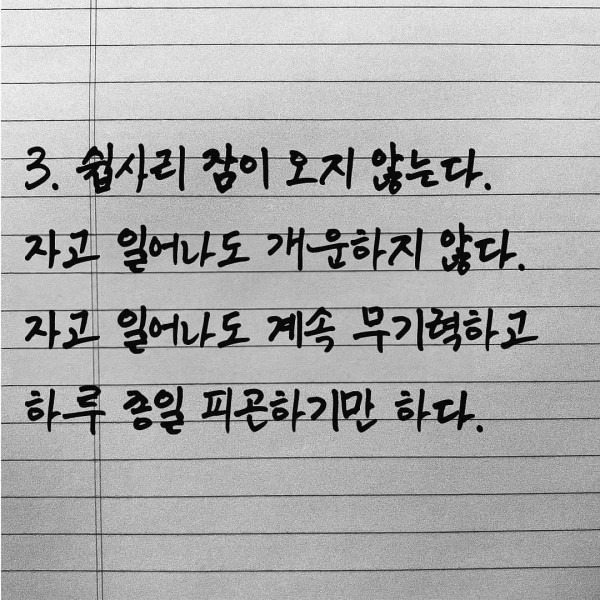 3. 쉽사리 잠이 오지 않는다.
자고 일어나도 개운하지 않다.
자고 일어나도 계속 무기력하고
하루 종일 피곤하기만 하다.